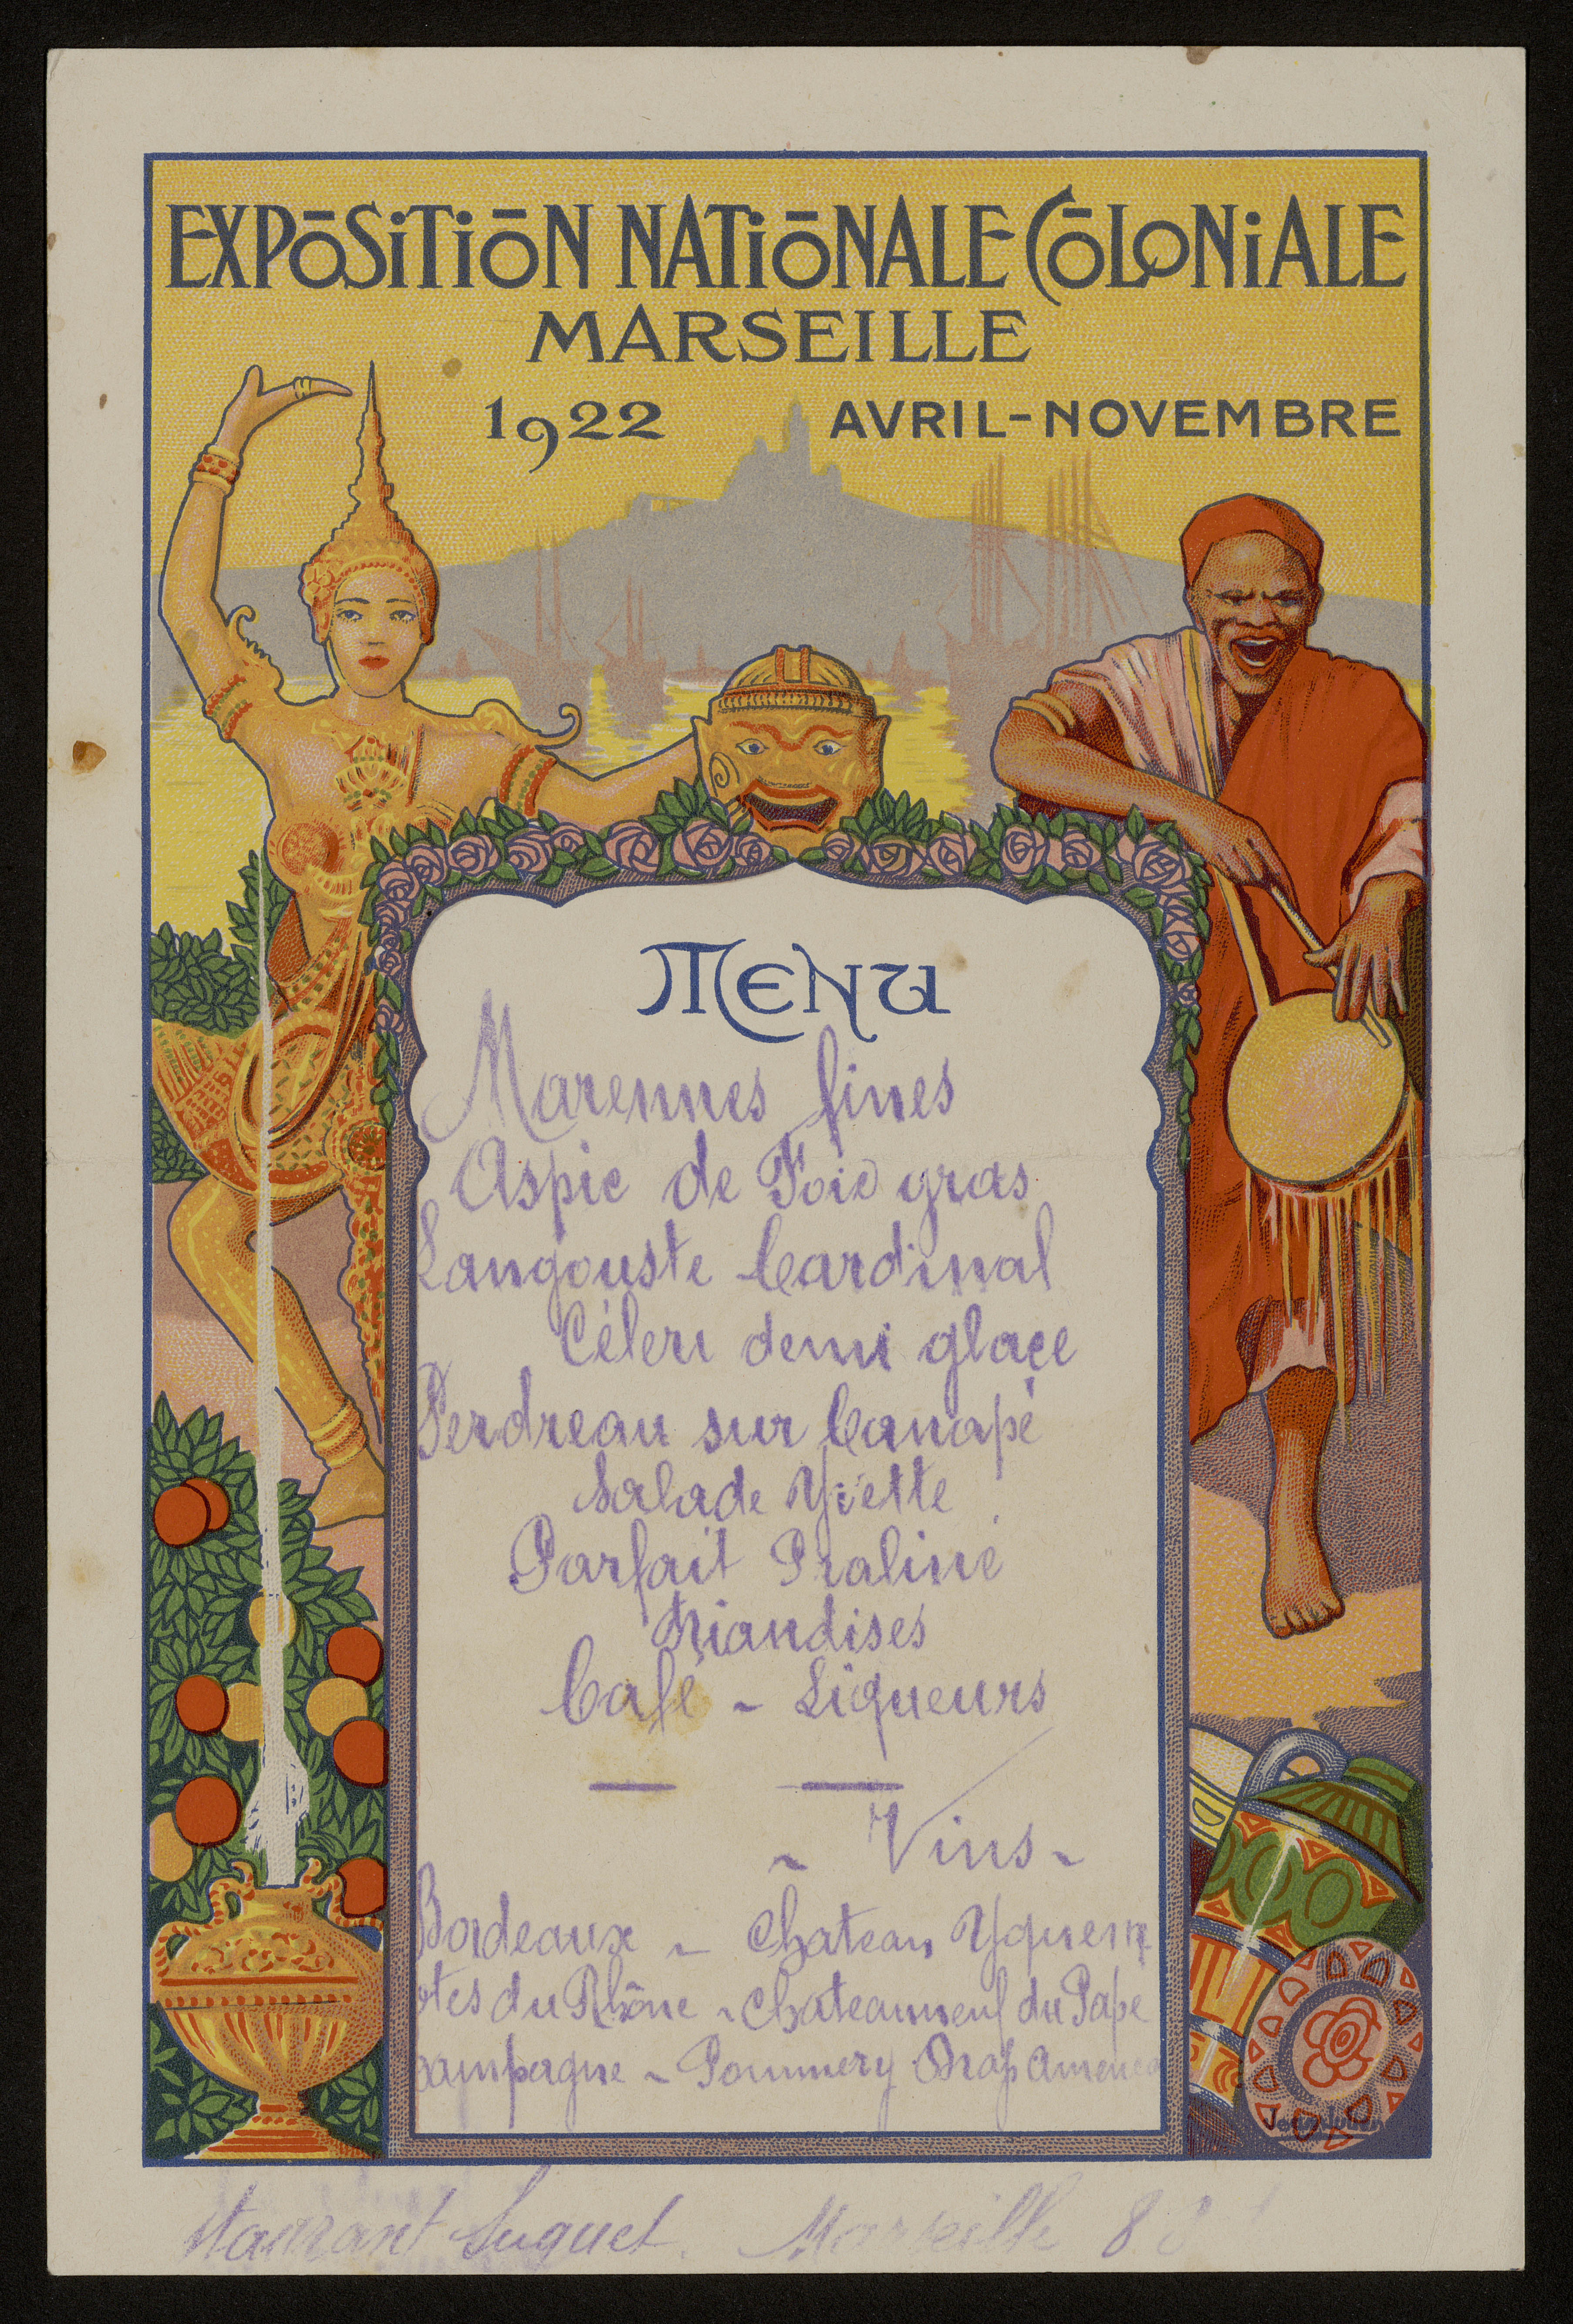 EXPōSiTiōN NATiōNALE CōLONiALE
MARSEILLE
1922 AVRIL-NOVEMBRE
MENU
Marennes fines
Aspic de Foie gras
Langouste Cardinal
Céleri demi glace
Perdreau sur Canapé
Salade Yvette
Parfait Praliné
Friandises
Café - Liqueurs
- Vins -
Bordeaux - Chateau Yquem
otes du Rhône - Chateauneuf du Pape
ampagne - Pommery Drap
staurant Suquet. Marseille